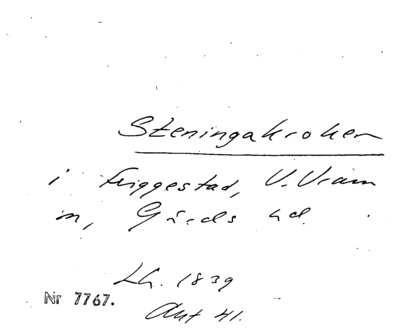 Steningakroken
i Friggestad, V. Vram
m, Gärds hd.
Lh. 1839
Nr 7767.
Ant 41.